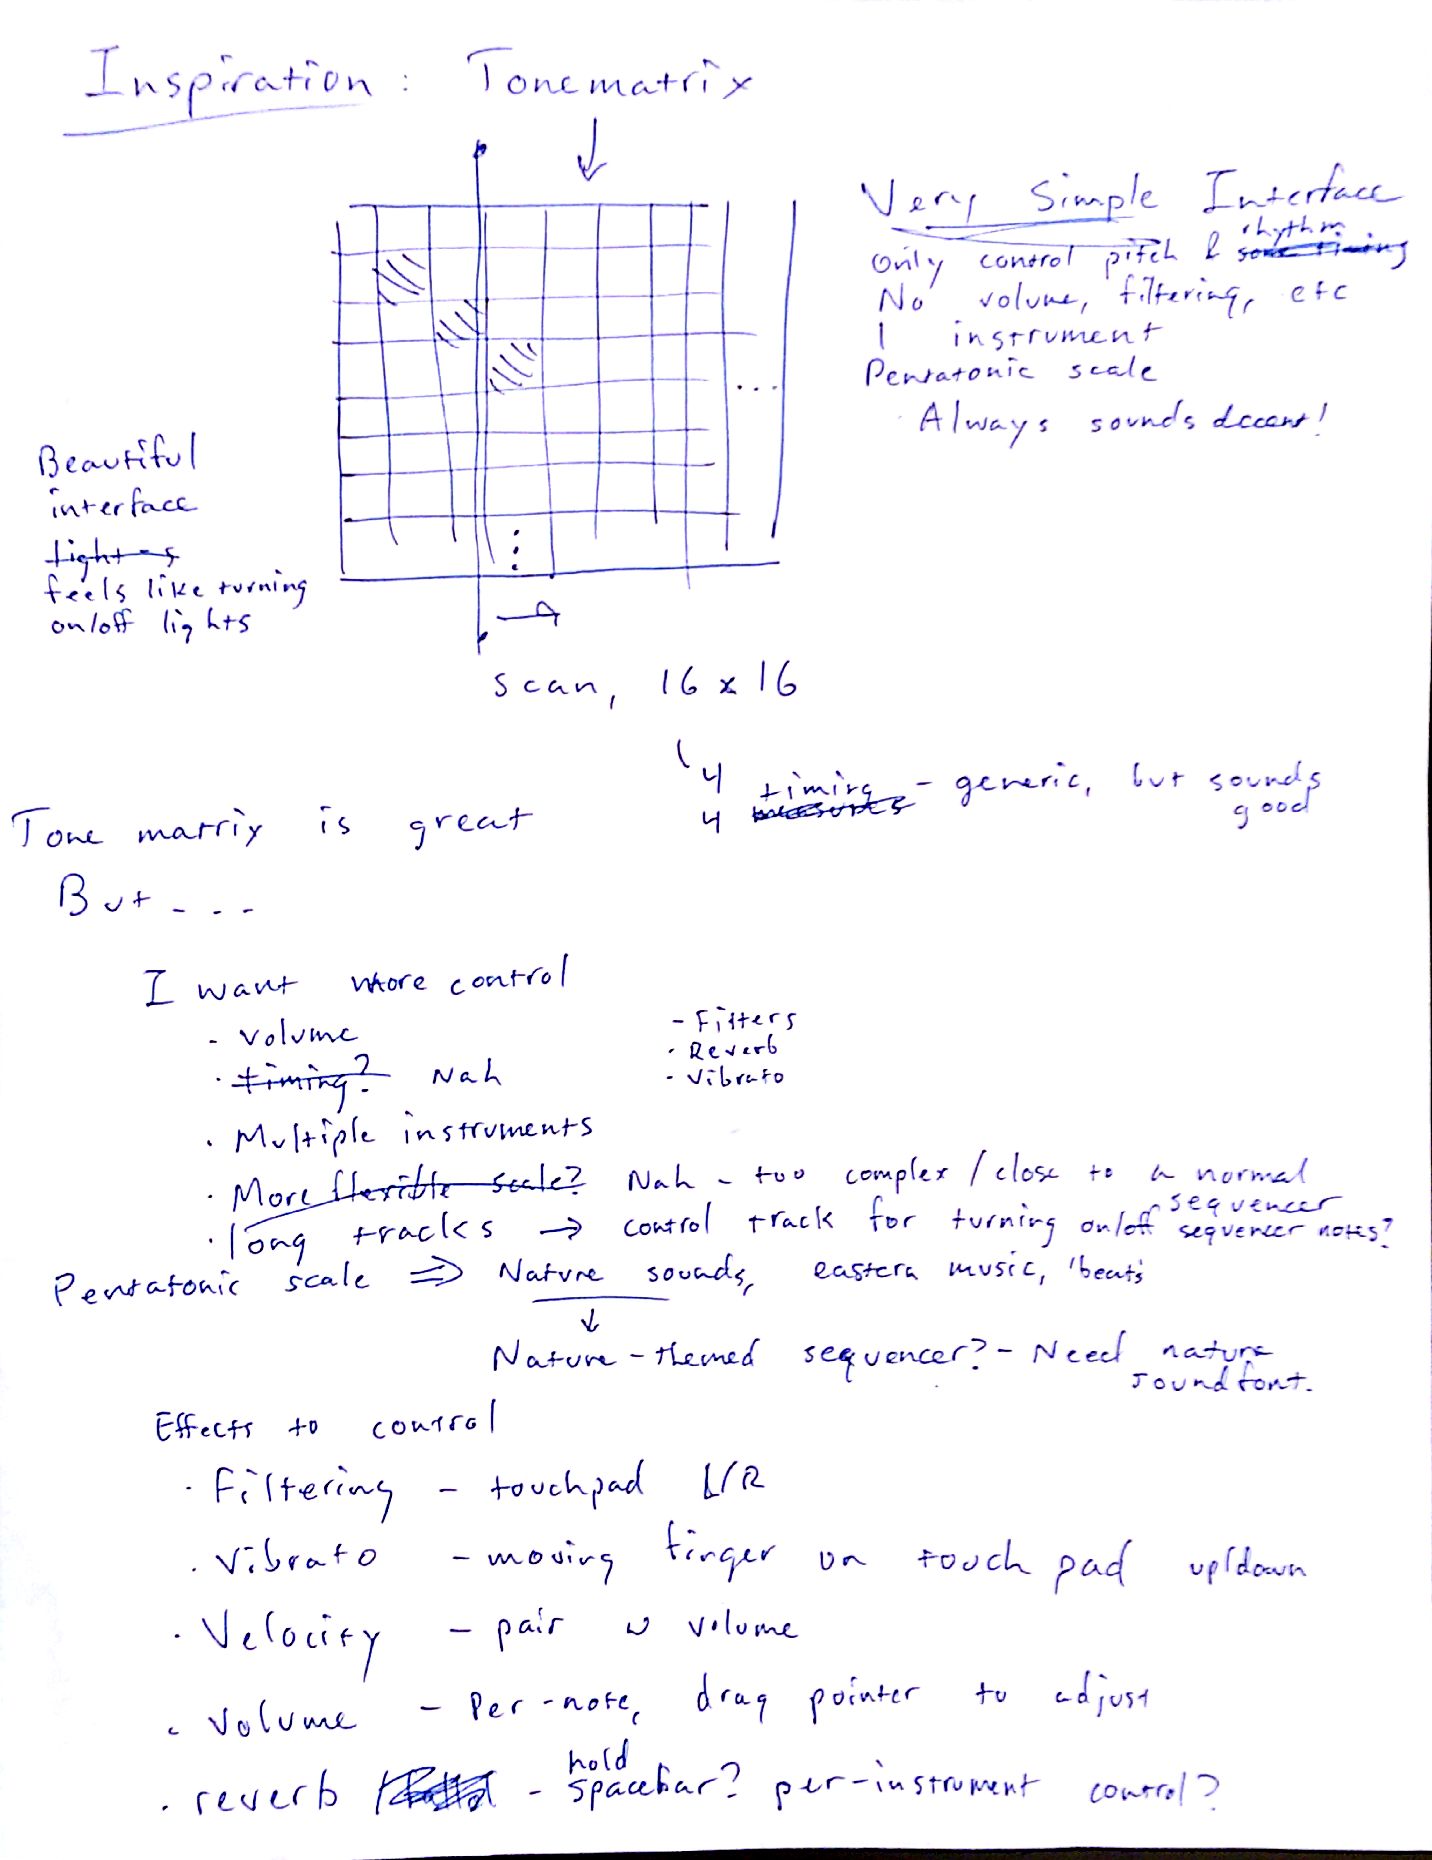 Inspiration: Tonematrix
Very Simple Interface
Only control pitch & rhythm some timing
No volume, filtering, etc
1 instrument
Pentatonic scale
Always sounds decent!
...
Beautiful
interface
feels like turning
on/off lights
scan, 16 x 16
4 timing - generic, but sounds
4 measures good
Tone matrix is great
But ....
I want more control
- volume
· timing? Nah
· Multiple instruments
· More flexible scale? Nah - too complex / close to a normal
sequencer
· long tracks → control track for turning on/off sequencer notes?
- Filters
· Reverb
- Vibrato
Pentatonic scale ⇒ Nature sounds, eastern music, 'beats'
↓
Nature-themed sequencer? - Need nature
soundfont.
Effects to control
· Filtering - touchpad L/R
· Vibrato - moving finger on touch pad up/down
· Velocity - pair w volume
· Volume - Per-note, drag pointer to adjust
· reverb - hold spacebar? per-instrument control?